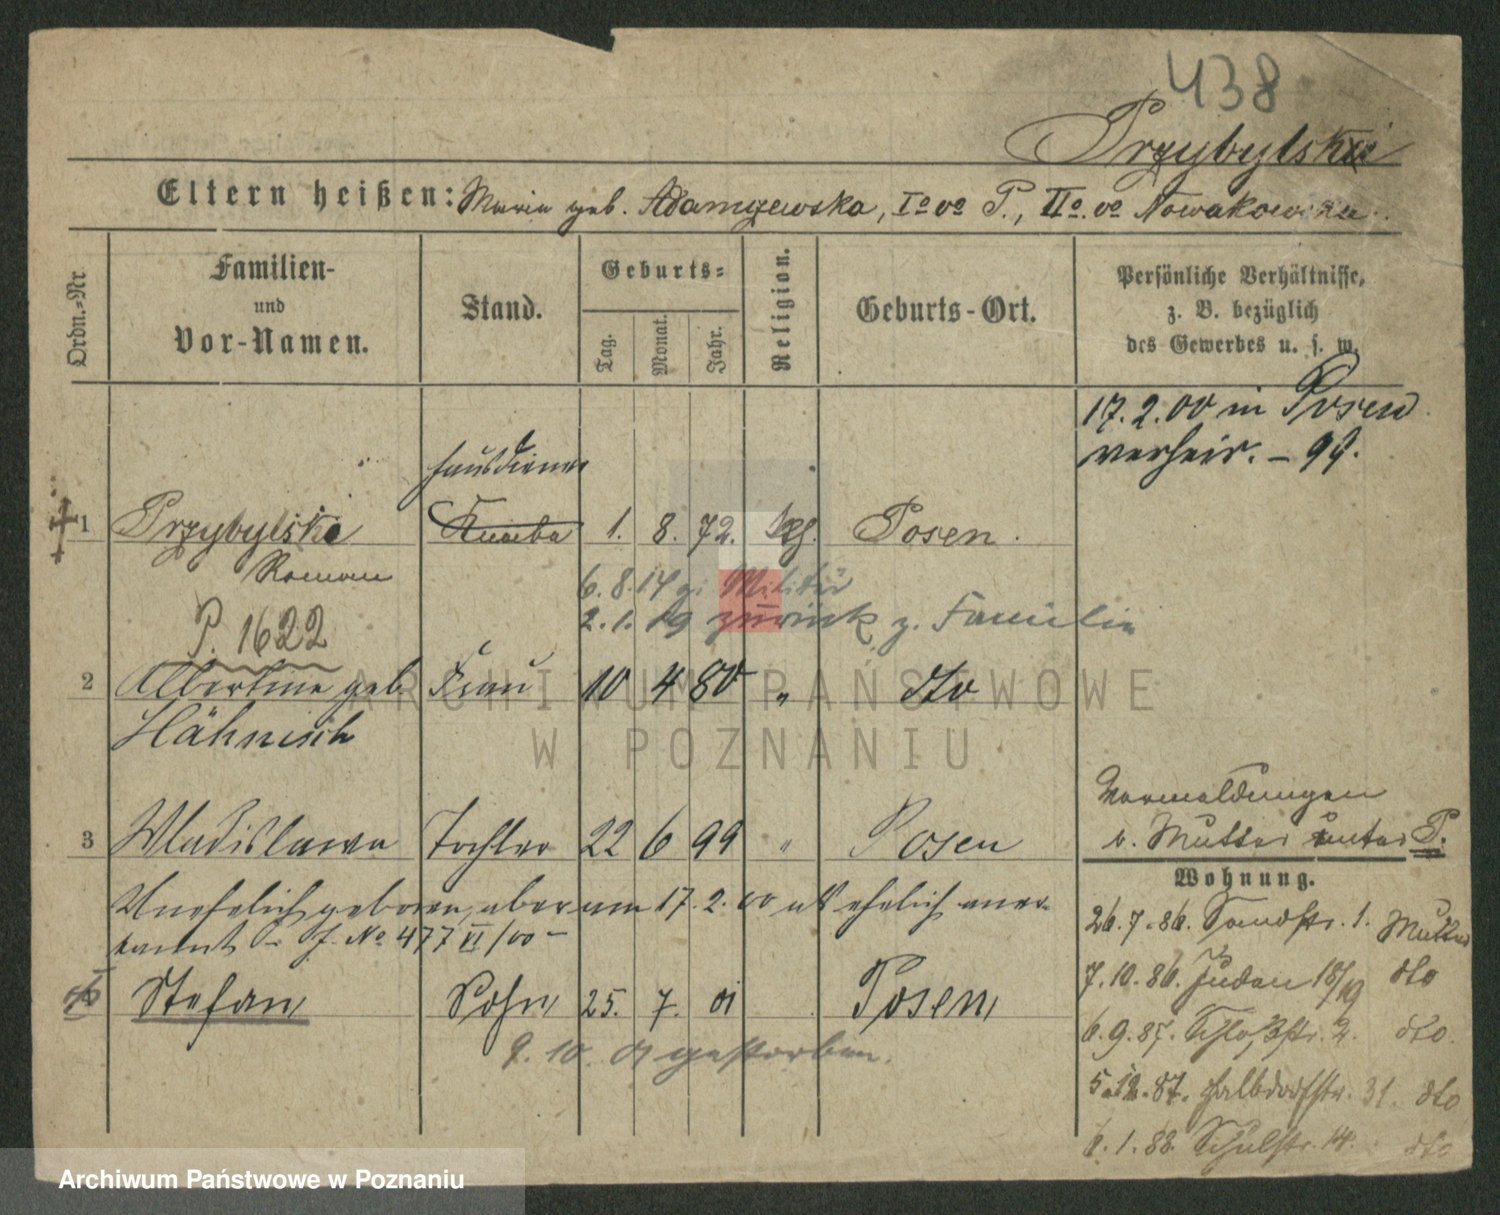 438
Przybylski
Eltern heißen: Maria geb. Adamczewska, Io vo P., IIo. vo Nowakowska.
Ordn.-Nr
Familien-
und
Vor-Namen.
Stand.
Geburts-
Tag.
Monat.
Jahr.
Religion.
Geburts-Ort.
Persönliche Verhältnisse,
z. B. bezüglich
des Gewerbes u. s. w.
17.2.00 in Posen
verheir. - 99.
Hausdiener
1 Przybylski Knabe 1. 8. 72. kth. Posen.
Roman
6.8.14 z. Militär
2.1.19 zurück z. Familie
P. 1622
2 Albertine geb. Frau 10 4 80 " dto
Hähnisch
Vormeldungen
b. Mutter unter P.
3 Wladislawa Tochter 22 6 99 " Posen
Unehelich geboren, aber am 17.2.00 als ehelich aner-
kannt - J. No 477 VI/00 -
Stefan Sohn 25. 7. 01 Posen
9. 10. 01 gestorben.
Wohnung.
26.7.86. Sandstr. 1. Mutter
7.10.86. Juden 18/19 dto
6.9.87. Schloßstr. 2. dto.
5.12.87. Halbdorfstr. 31. dto
6.1.88. Schulstr. 14. dto
ARCHIWUM PAŃSTWOWE
W POZNANIU
Archiwum Państwowe w Poznaniu